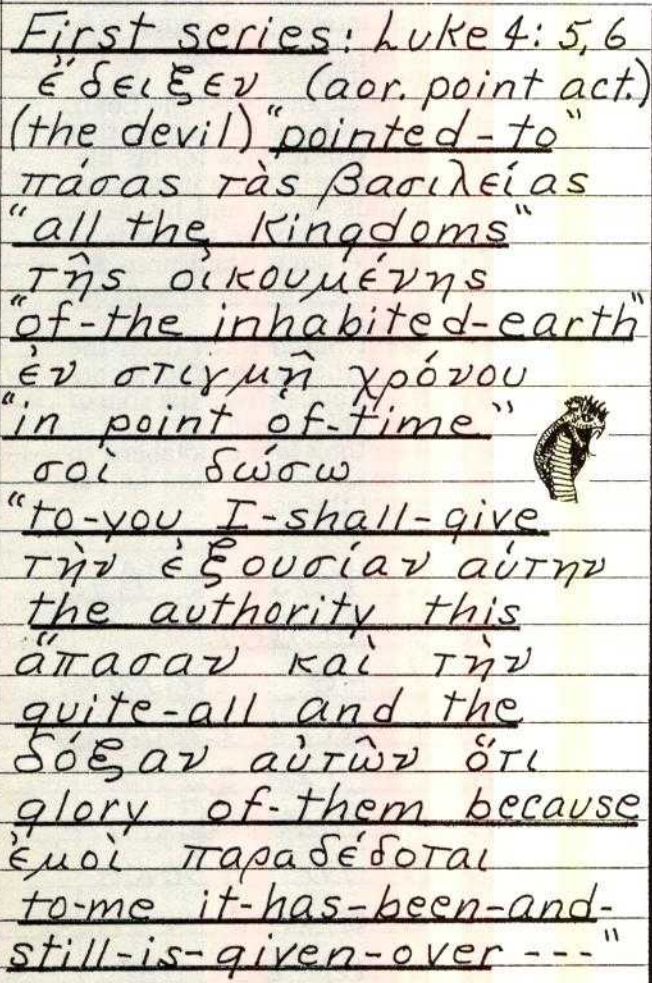 First series: Luke 4: 5,6
ἔδειξεν (aor. point act.)
(the devil) "pointed-to"
πάσας τὰς βασιλείας
"all the kingdoms"
τῆς οἰκουμένης
"of-the inhabited-earth"
ἐν στιγμῆ χρόνου
"in point of-time"
σοὶ δώσω
"to-you I-shall-give
τὴν ἐξουσίαν αύτην
the authority this
ἅπασαν καὶ τὴν
quite-all and the
δόξαν αὐτῶν ὅτι
glory of-them because
ἐμοὶ παραδέδοται
to-me it-has-been-and-
still-is-given-over ---"